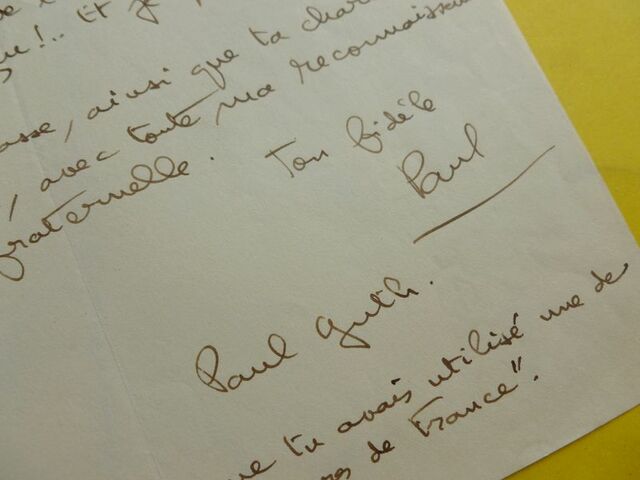 !.. Et je
asse, ainsi que ta char
, avec toute ma reconnaissan
fraternelle. Ton fidèle
Paul
Paul Guth.
que tu avais utilisé une de
de France".